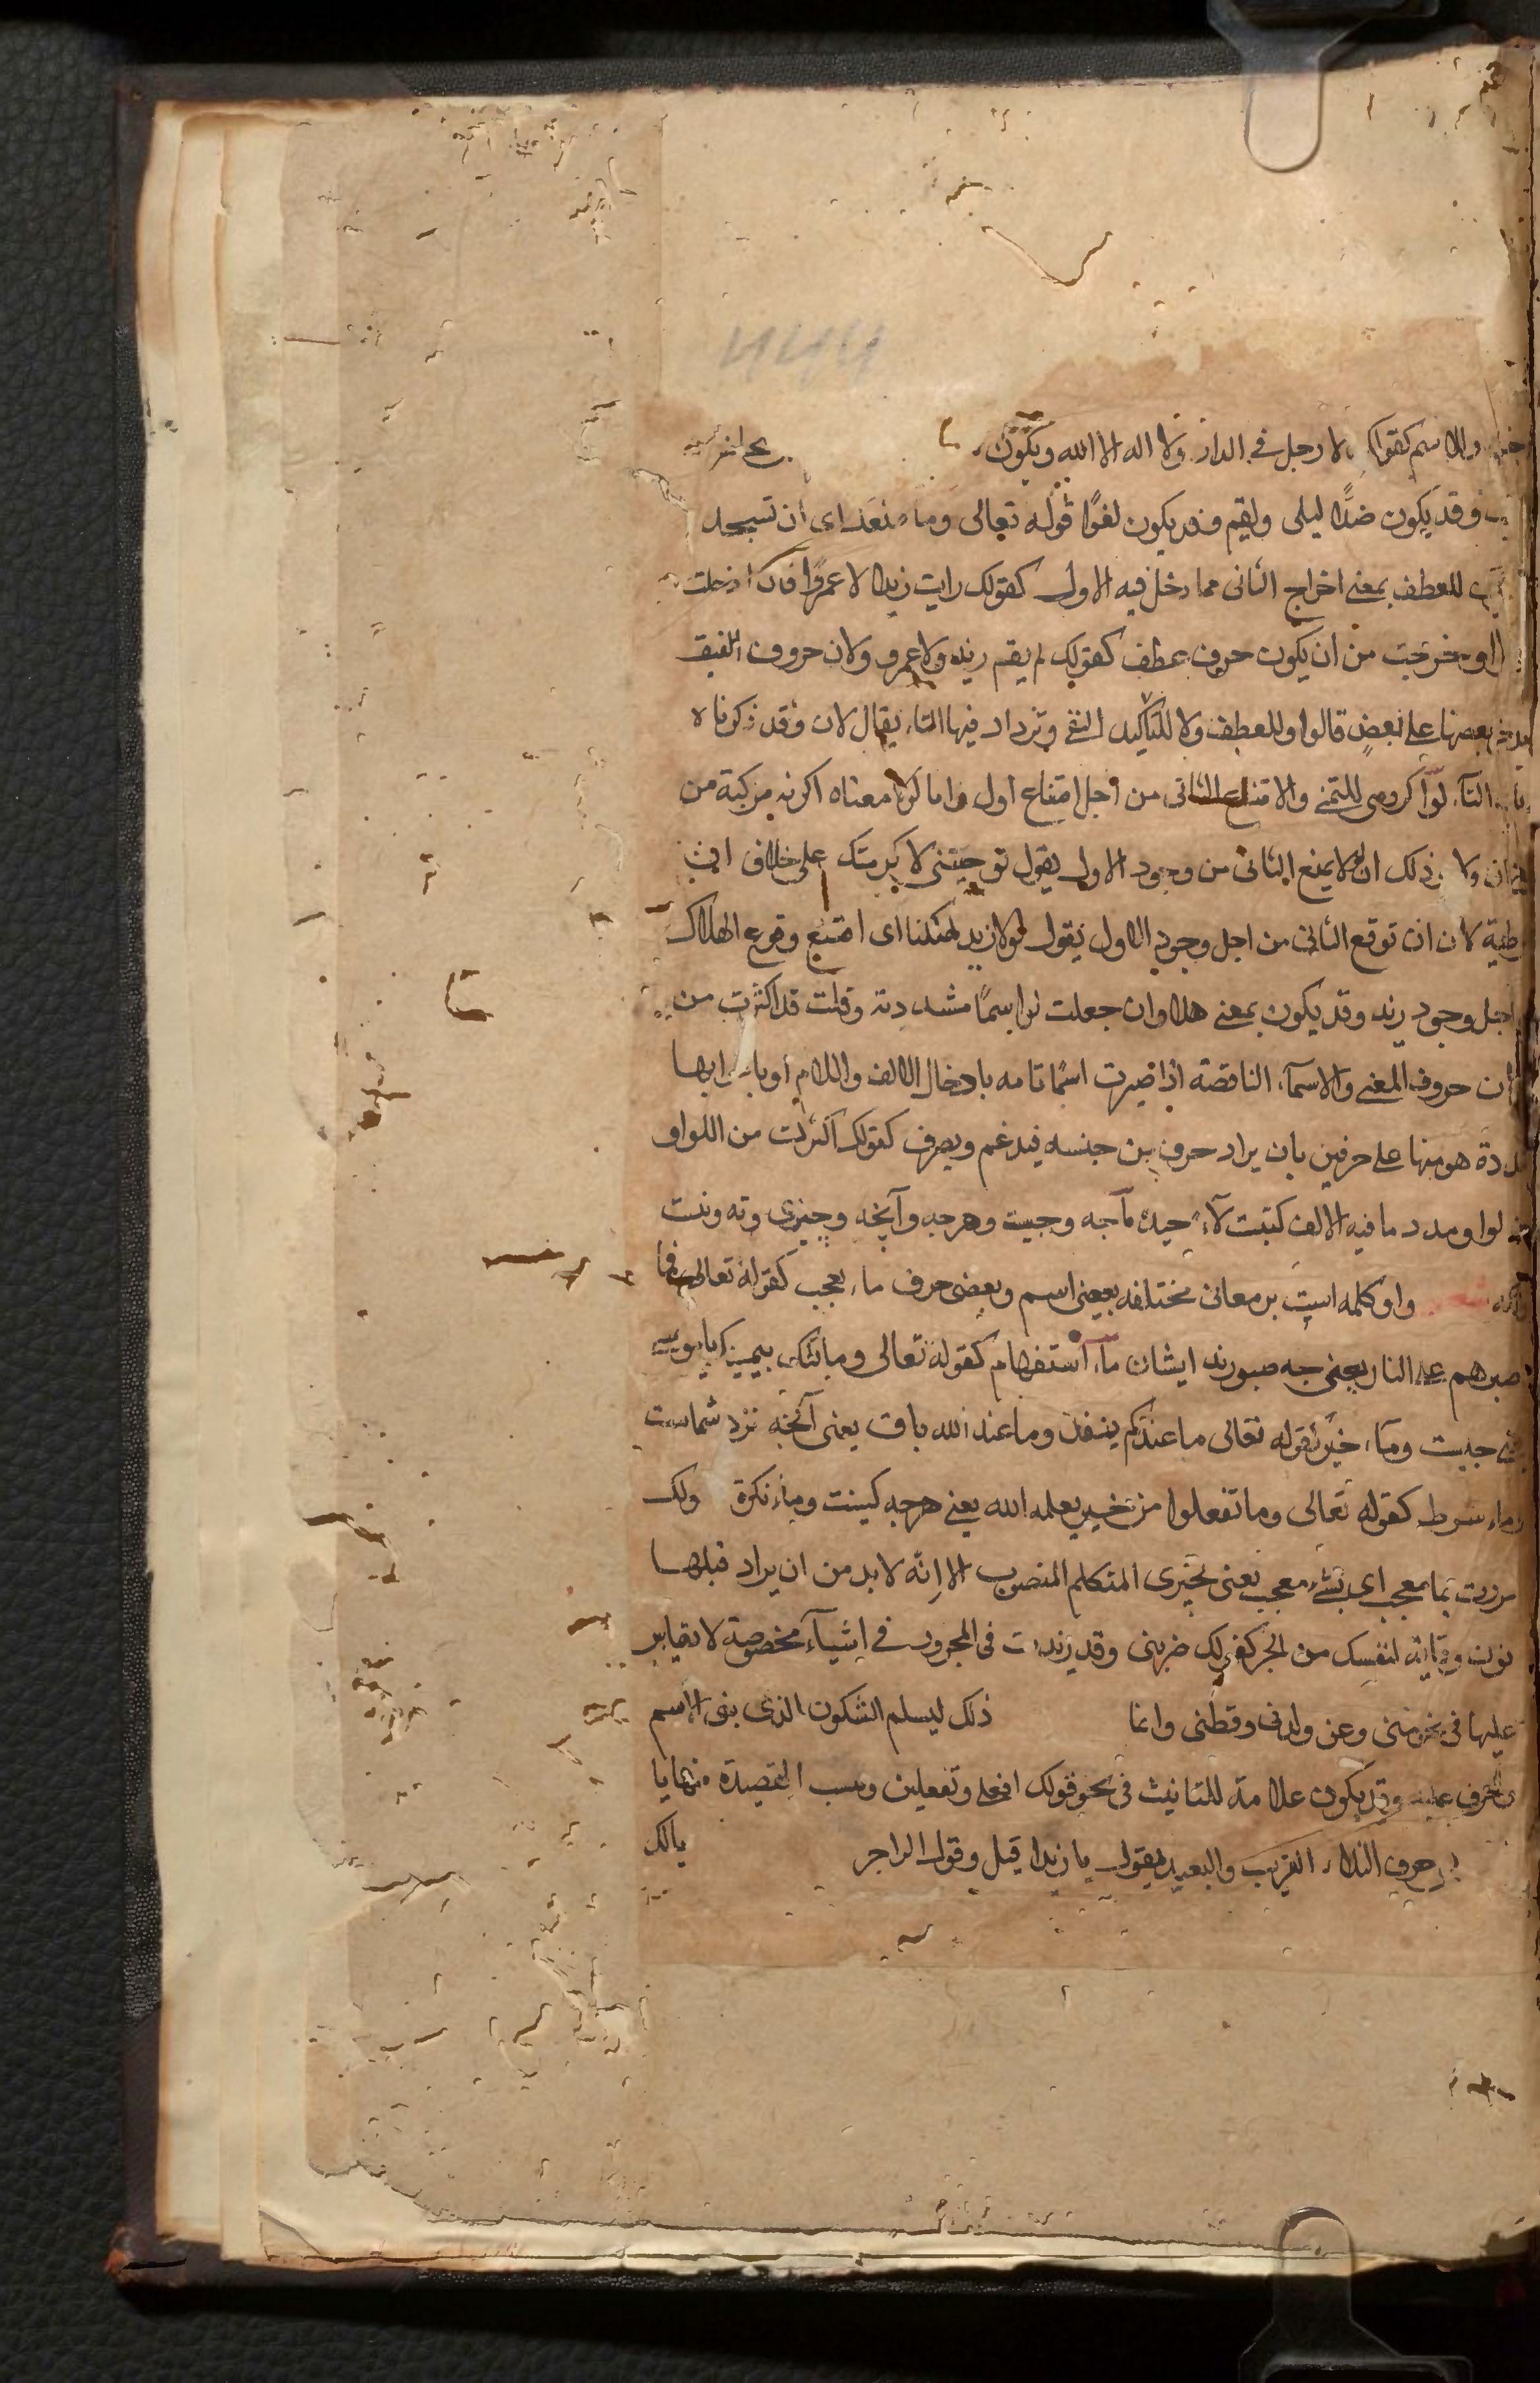 والاسم كقولك لا رجل فى الدار ولا اله الا الله ويكون
وقد يكون ضدًّا لبلى ولنعم وقد يكون لغوًا قوله تعالى وما منعك اى ان تسجد
للعطف بمعنى اخراج الثانى مما دخل فيه الاول كقولك رايت زيدا لا عمرًوا فان ادخلت
الواو خرجت من ان يكون حرف عطف كقولك لم يقم زيد ولا عمرو ولان حروف النسق
بعضها على بعض قالوا وللعطف ولا للتاكيد النفى وتزداد فيها التاء يقال لات وقد ذكرناه
التآء لو اكر وهى للتمنى والامتناع الثانى من اجل امتناع اول واما لولا معناه اكرنه مركبة من
ان ولا ذلك ان لولا يمنع الثانى من وجود الاول يقول لو جئتنى لاكرمتك على خلاف ان
لان ان توقع الثانى من اجل وجود الاول نقول لولا زيد لهلكنا اى امتنع وقوع الهلاك
اجل وجود زيد وقد يكون بمعنى هلا وان جعلت لو اسمًا مشددته وقلت قد اكثرت من
ان حروف المعنى والاسمآء الناقصة اذا صيرت اسمًا تامه بادخال الالف واللام او باعرابها
هو منها على حرفين بان يزاد حرف من جنسه فيدغم ويصرف كقولك اكثرت من اللواو
لوا ومدد ما فيه الالف كتبت لآء جيد مآ جه وجيست وهرجه وآنچه وچيزى ونه ونيست
واو كلمه است بر معانى مختلفه بعضى اسم وبعضى حرف ماء تعجب كقوله تعالى فما
اصبرهم على النار يعنى چه صبورند ايشان مآء استفهام كقوله تعالى وما تلك بيمينك يا موسى
جيست ومآء خبر كقوله تعالى ما عندكم ينفد وما عند الله باق يعنى آنچه نزد شماست
وماء شرط كقوله تعالى وما تفعلوا من خير يعلمه الله يعنى هرجه كنيت وماء نكرة ولك
مررت بما معجب اى بشىء معجب يعنى بچيزى المتكلم المنصوب الا انه لابد من ان يزاد قبلها
نون وقاية لنفسك من الجر كقولك ضربنى وقد زيدت فى المجرور فى اشيآء مخصوصة لا يقاس
عليها فى نحو منى وعن ولدنى وقطنى وانما ذلك ليسلم السكون الذى بنى الاسم
والحرف عليه وقد يكون علامة للتانيث فى نحو قولك افعلى وتفعلين ونسب القصيدة يا
حرف النداء القريب والبعيد يقول يا زيد اقبل وقول الراجز يالك